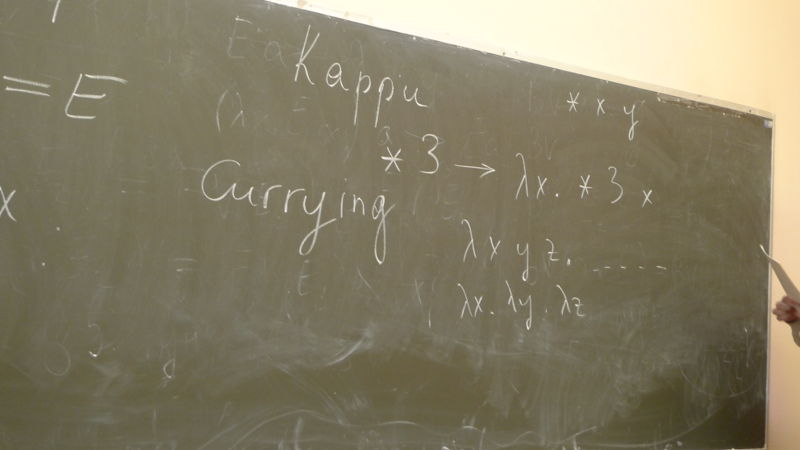 = E
Карри
* x y
* 3 → λx. * 3 x
Currying
x
λ x y z. .....
λx. λy. λz